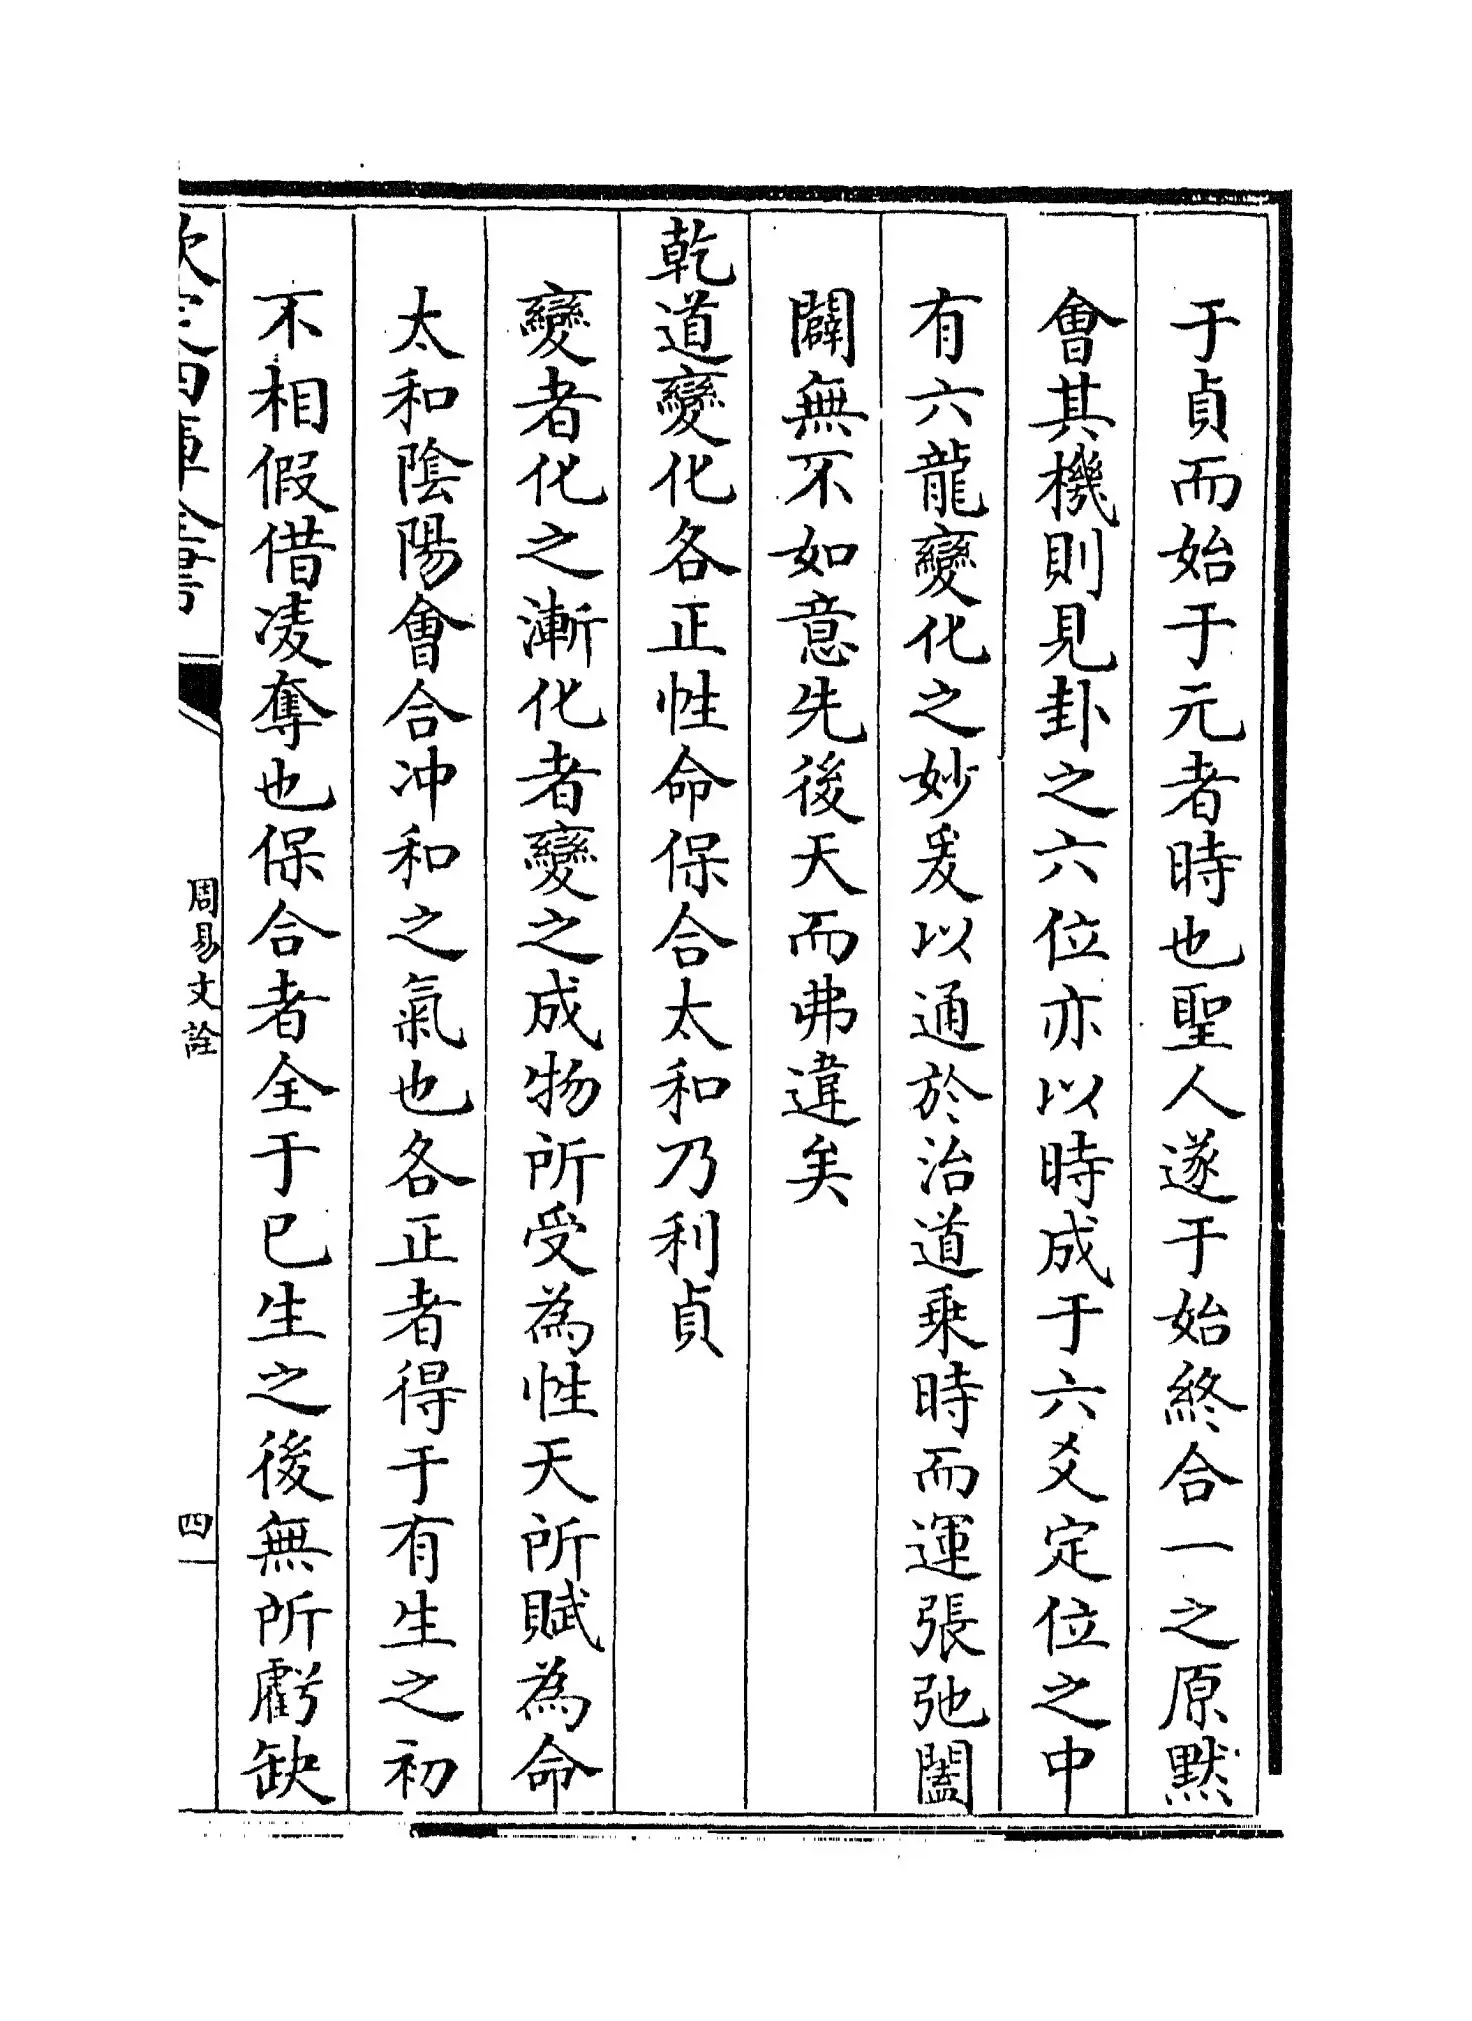 于貞而始于元者時也聖人遂于始終合一之原黙
會其機則見卦之六位亦以時成于六爻定位之中
有六龍變化之妙爰以通於治道乗時而運張弛闔
闢無不如意先後天而弗違矣
乾道變化各正性命保合太和乃利貞
變者化之漸化者變之成物所受為性天所賦為命
太和陰陽會合冲和之氣也各正者得于有生之初
不相假借凌奪也保合者全于巳生之後無所虧缺
欽定四庫全書
周易文詮
四